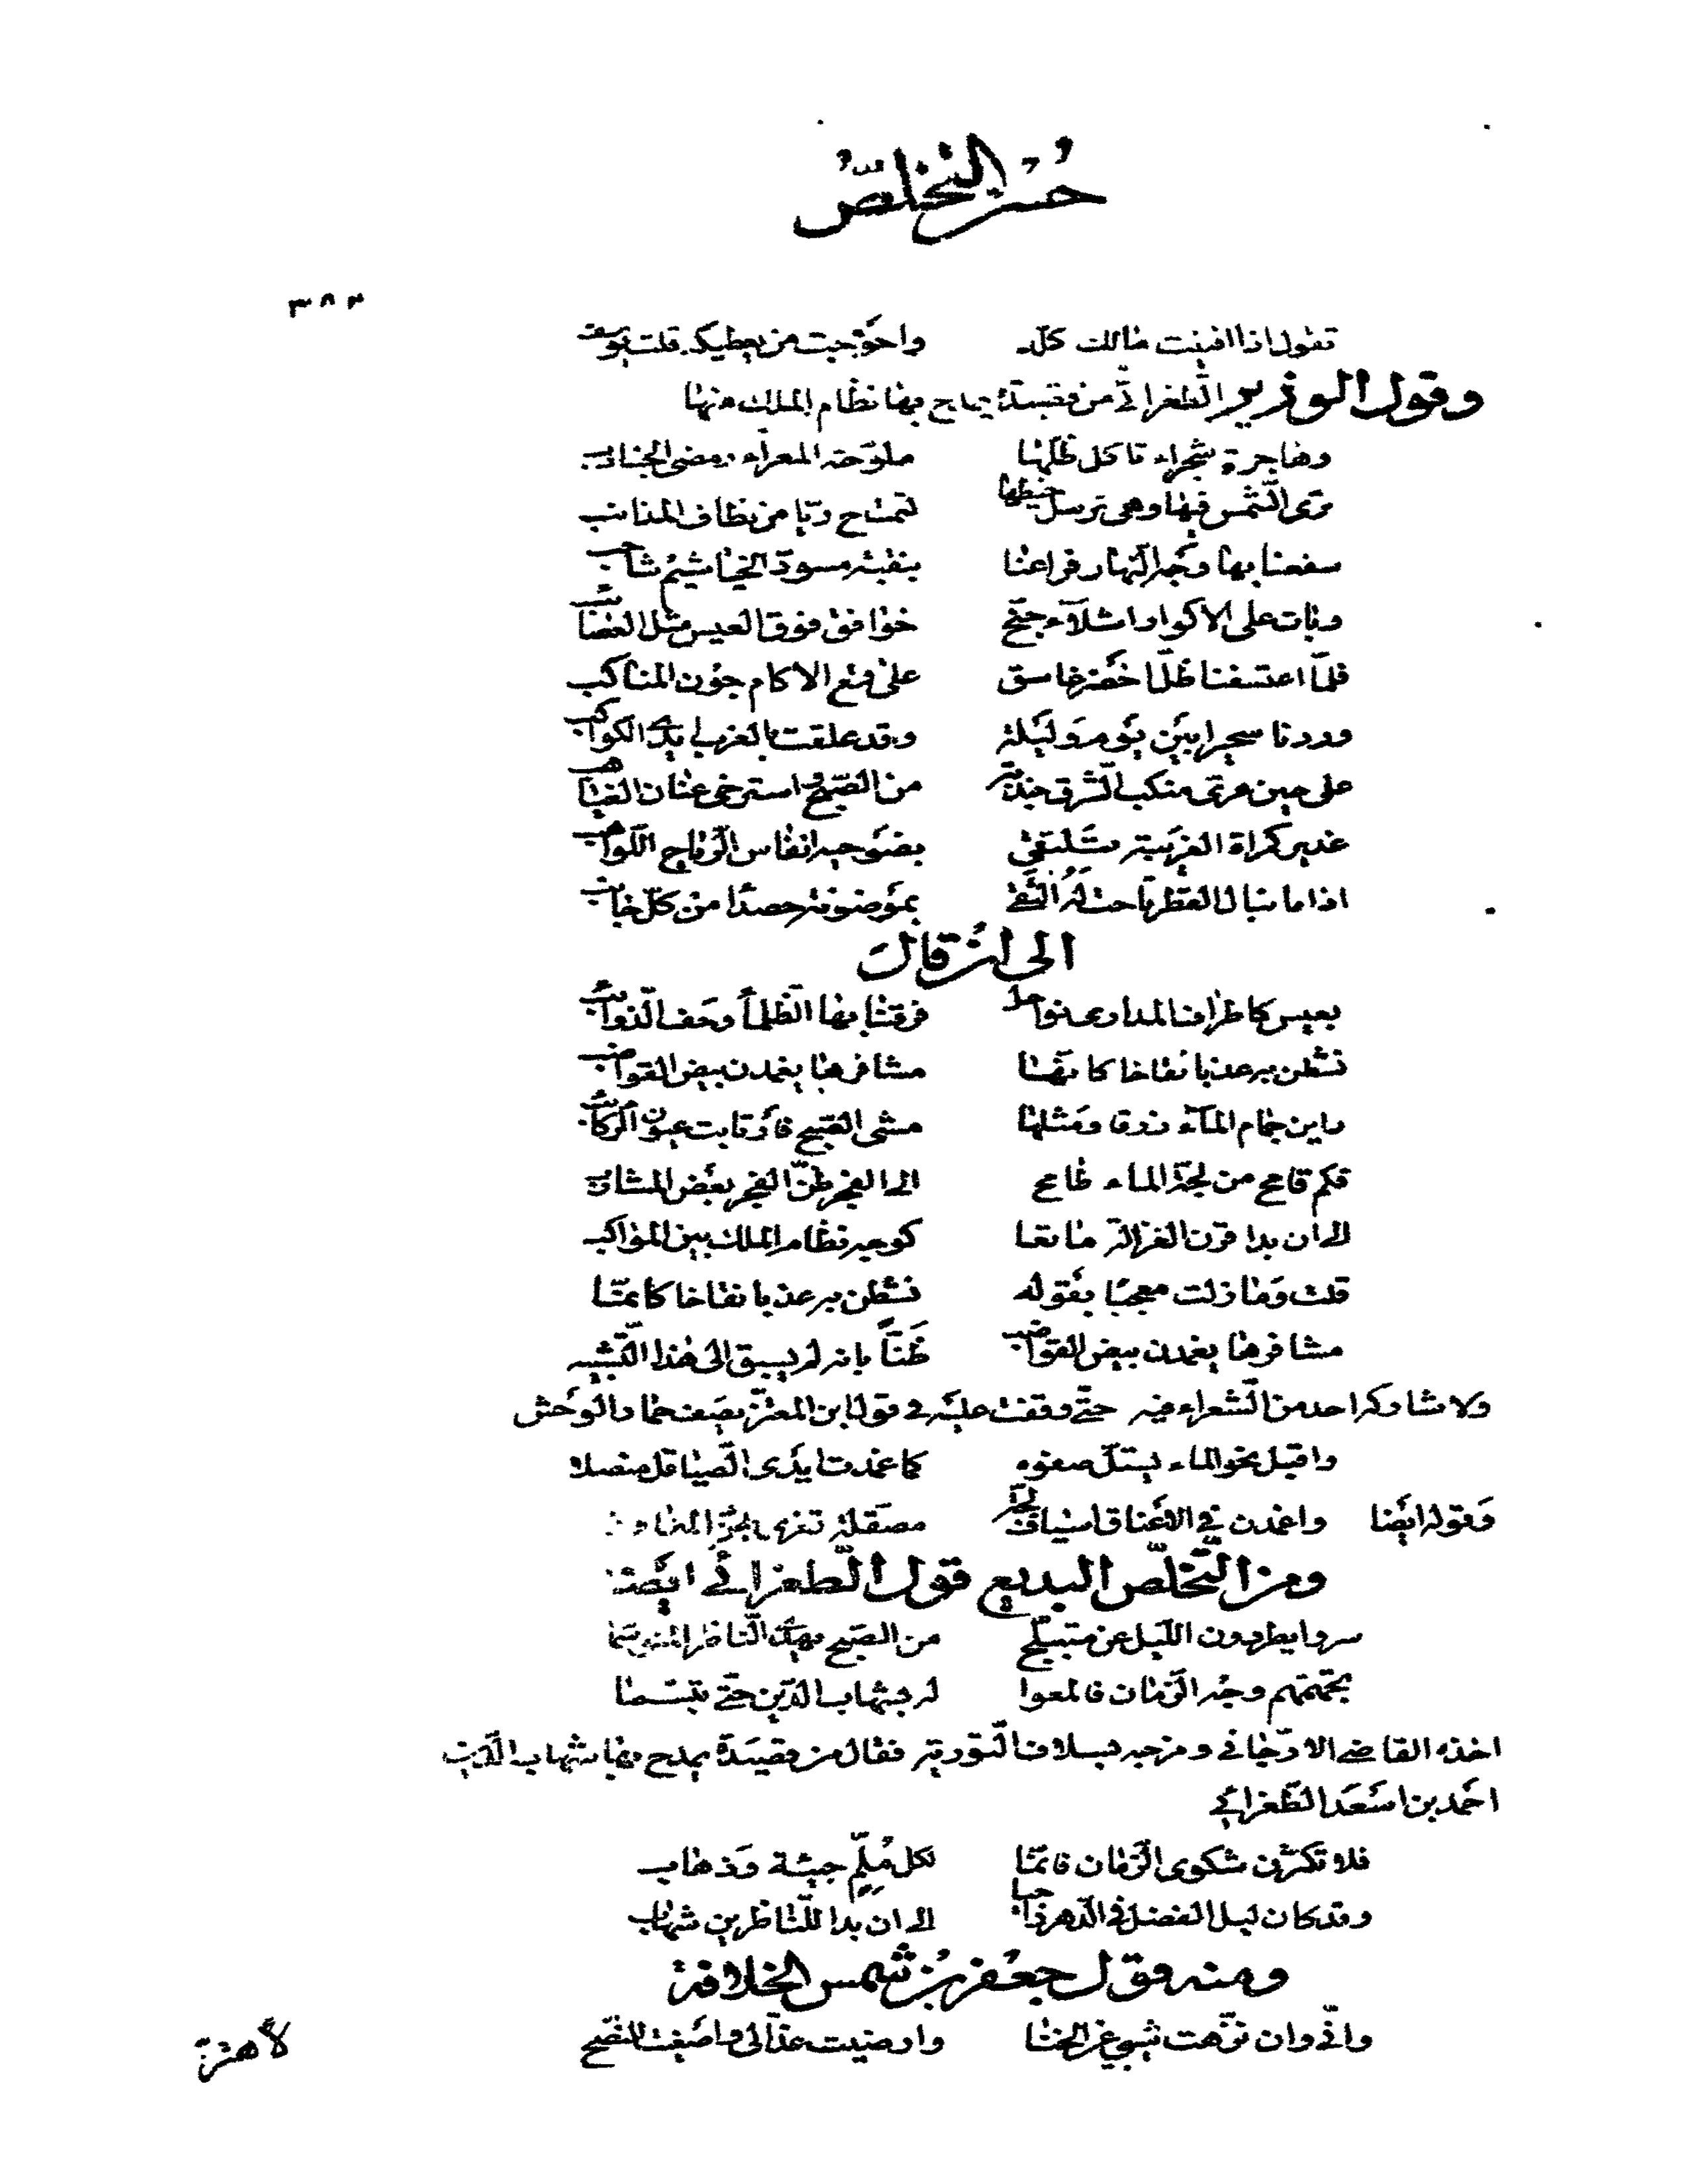 حسن التخلص
٣٨٣
تقول اذا افنيت مالك كله واحوجت من يعطيك قلت يوسف
وقول الوزير الطغرائي من قصيدة يمدح بها نظام الملك منها
وهاجرة سجراء تاكل ظلها ملوحة المعزاء رمضى الجنادب
ترى الشمس فيها وهي ترسل خيطها لتمتاح ريا من نطاف المذانب
سفعنا بها وجه النهار فراعنا بنقبة مسود الخياشيم شاحب
وبات على الاكوار اشلاء جنح خوافق فوق العيس مثل العصائب
فلما اعتسفنا ظل اخضر غاسق على قمع الاكام جون المناكب
وردنا سحيرا بين يوم وليلة وقد علقت بالغرب ايدي الكواكب
على حين عرى منكب الشرق جذبة من الصبح واسترخى عنان الغياهب
غدير كمراة الغريبة تلتقي بضوجيه انفاس الرياح اللواعب
اذا ما نبال القطر تاحت له اتقى بموضونة حصدا من كل جانب
الى ان قال
بعيس كاطراف المدارى نواحل فرقنا بها الظلماء وحف الذوائب
نشطن به عذبا نقاخا كانما مشافرها يغمدن بيض القواضب
راين جمام الماء زرقا ومثلها مشى الصبح فارتابت عيون الركائب
فكم قامح من لجة الماء طامح الى الفجر ظن الفجر بعض المشارب
الى ان بدا قرن الغزالة ماتعا كوجه نظام الملك بين المواكب
قلت وما زلت معجبا بقوله نشطن به عذبا نقاخا كانما
مشافرها يغمدن بيض القواضب ظنا بانه لم يسبق الى هذا التشبيه
ولا شاركه احد من الشعراء فيه حتى وقفت عليه في قول ابن المعتز يصف حمار الوحش
واقبل نحو الماء يستل صفوه كما اغمدت ايدى الصياقل منصلا
وقوله ايضا واغمدن في الاعناق اسياف لجة مصقلة تفرى بهن المفاوز
ومن التخلص البديع قول الطغرائي ايضا
سروا يطردون الليل عن متبلج من الصبح يهدي الناظر المتوسما
تجهمهم وجه الزمان فالمعوا له بشهاب الدين حتى تبسما
اخذه القاضي الارجاني ومزجه بسلاف التورية فقال من قصيدة يمدح بها شهاب الدين
احمد بن اسعد الطغرائي
فلا تكثرن شكوى الزمان فانما لكل ملم جيئة وذهاب
وقد كان ليل الفضل في الدهر داجيا الى ان بدا للناظرين شهاب
ومنه قول جعفر بن شمس الخلافة
واني وان نزهت شيبي عن الخنا وارضيت عذالي واصغيت للنصح
لاهتز